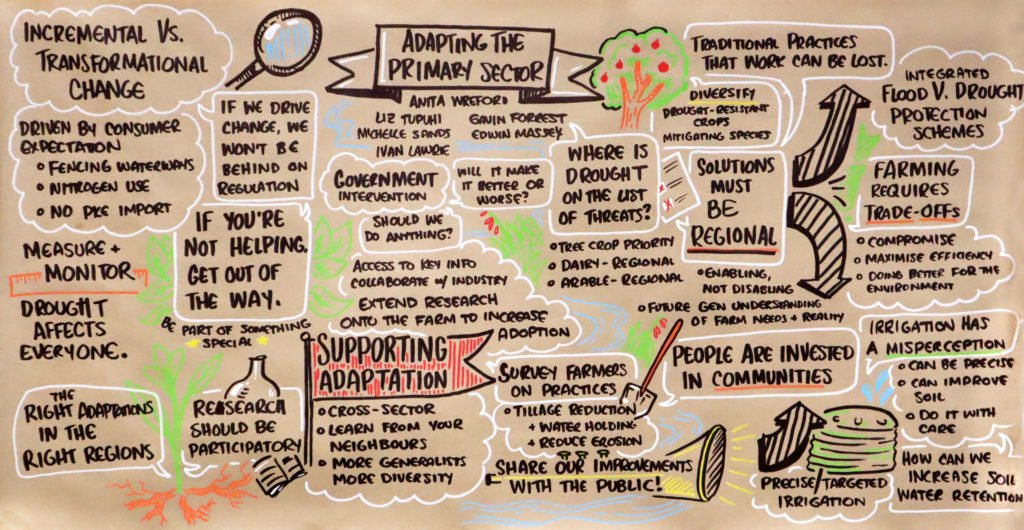 INCREMENTAL VS.
TRANSFORMATIONAL
CHANGE
DRIVEN BY CONSUMER
EXPECTATION
FENCING WATERWAYS
NITROGEN USE
NO PKE IMPORT
IF WE DRIVE
CHANGE, WE
WON'T BE
BEHIND ON
REGULATION
MEASURE +
MONITOR
DROUGHT
AFFECTS
EVERYONE.
IF YOU'RE
NOT HELPING,
GET OUT OF
THE WAY.
BE PART OF SOMETHING
SPECIAL
THE
RIGHT ADAPTATIONS
IN THE
RIGHT REGIONS
RESEARCH
SHOULD BE
PARTICIPATORY
ADAPTING THE
PRIMARY SECTOR
ANITA WREFORD
LIZ TUPUHI
MICHELLE SANDS
IVAN LAWRIE
GAVIN FORREST
EDWIN MASSEY
GOVERNMENT
INTERVENTION
WILL IT MAKE
IT BETTER OR
WORSE?
SHOULD WE
DO ANYTHING?
ACCESS TO KEY INFO
COLLABORATE W/ INDUSTRY
EXTEND RESEARCH
ONTO THE FARM TO INCREASE
ADOPTION
SUPPORTING
ADAPTATION
CROSS-SECTOR
LEARN FROM YOUR
NEIGHBOURS
MORE GENERALISTS
MORE DIVERSITY
WHERE IS
DROUGHT
ON THE LIST
OF THREATS?
TREE CROP PRIORITY
DAIRY - REGIONAL
ARABLE - REGIONAL
TRADITIONAL PRACTICES
THAT WORK CAN BE LOST.
DIVERSIFY
DROUGHT-RESISTANT
CROPS
MITIGATING SPECIES
SOLUTIONS
MUST
BE
REGIONAL
ENABLING,
NOT DISABLING
FUTURE GEN UNDERSTANDING
OF FARM NEEDS + REALITY
INTEGRATED
FLOOD V. DROUGHT
PROTECTION
SCHEMES
FARMING
REQUIRES
TRADE-OFFS
COMPROMISE
MAXIMISE EFFICIENCY
DOING BETTER FOR THE
ENVIRONMENT
SURVEY FARMERS
ON PRACTICES
TILLAGE REDUCTION
+ WATER HOLDING
+ REDUCE EROSION
SHARE OUR IMPROVEMENTS
WITH THE PUBLIC!
PEOPLE ARE INVESTED
IN COMMUNITIES
IRRIGATION HAS
A MISPERCEPTION
CAN BE PRECISE
CAN IMPROVE
SOIL
DO IT WITH
CARE
PRECISE/TARGETED
IRRIGATION
HOW CAN WE
INCREASE SOIL
WATER RETENTION